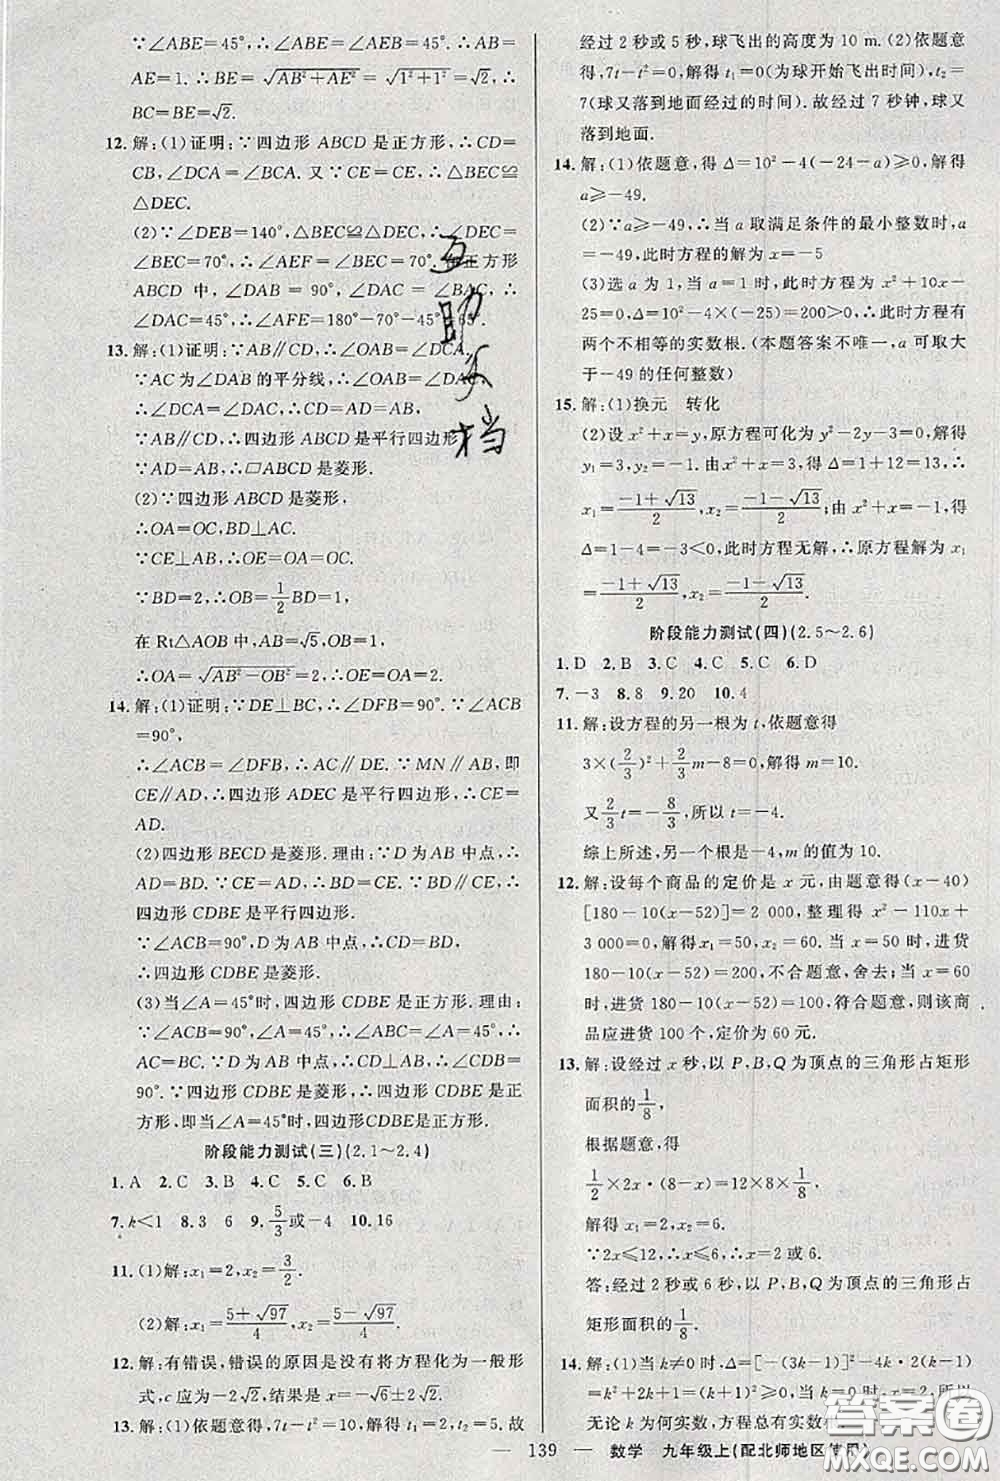 ∵∠ABE=45°,∴∠ABE=∠AEB=45°. ∴AB=
AE=1. ∴BE=√(AB²+AE²)=√(1²+1²)=√2,∴
BC=BE=√2.
12. 解:(1)证明:∵四边形 ABCD 是正方形,∴CD=
CB,∠DCA=∠BCA. 又∵CE=CE,∴△BEC≌
△DEC.
(2)∵∠DEB=140°,△BEC≌△DEC,∴∠DEC=
∠BEC=70°,∴∠AEF=∠BEC=70°. 在正方形
ABCD 中,∠DAB=90°,∠DAC=∠BAC,∴
∠DAC=45°,∴∠AFE=180°-70°-45°=65°.
13. 解:(1)证明:∵AB∥CD,∴∠OAB=∠DCA.
∵AC为∠DAB的平分线,∴∠OAB=∠DAC,∴
∠DCA=∠DAC,∴CD=AD=AB,
∵AB∥CD,∴四边形ABCD是平行四边形,
∵AD=AB,∴□ABCD是菱形.
(2)∵四边形ABCD是菱形,
∴OA=OC,BD⊥AC.
∵CE⊥AB,∴OE=OA=OC.
∵BD=2,∴OB=1/2BD=1,
在Rt△AOB中,AB=√5,OB=1,
∴OA=√(AB²-OB²)=2,∴OE=OA=2.
14. 解:(1)证明:∵DE⊥BC,∴∠DFB=90°. ∵∠ACB
=90°,
∴∠ACB=∠DFB,∴AC∥DE. ∵MN∥AB,即
CE∥AD,∴四边形 ADEC 是平行四边形,∴CE=
AD.
(2)四边形BECD是菱形. 理由:∵D为AB中点,∴
AD=BD. ∵CE=AD,∴BD=CE. ∵BD∥CE,∴
四边形CDBE是平行四边形.
∵∠ACB=90°,D为AB中点,∴CD=BD,
∴四边形CDBE是菱形.
(3)当∠A=45°时,四边形CDBE是正方形. 理由:
∵∠ACB=90°,∠A=45°,∴∠ABC=∠A=45°,∴
AC=BC. ∵D为AB中点,∴CD⊥AB,∴∠CDB=
90°. ∵四边形CDBE是菱形,∴四边形CDBE是正
方形,即当∠A=45°时,四边形CDBE是正方形.
阶段能力测试(三)(2.1~2.4)
1. A 2. C 3. B 4. C 5. C 6. B
7. k<1 8. 3 6 9. 5/3或-4 10. 16
11. (1)解:x₁=2,x₂=3/2.
(2)解:x₁=(5+√97)/4,x₂=(5-√97)/4.
12. 解:有错误,错误的原因是没有将方程化为一般形
式,c应为-2√2,结果是x=-√6±2√2.
13. 解:(1)依题意得,7t-t²=10,解得t₁=2,t₂=5. 故
经过2秒或5秒,球飞出的高度为10 m. (2)依题意
得,7t-t²=0,解得t₁=0(为球开始飞出时间),t₂=
7(球又落到地面经过的时间). 故经过7秒钟,球又
落到地面.
14. 解:(1)依题意,得 Δ=10²-4(-24-a)≥0,解得
a≥-49.
(2)∵a≥-49,∴当a取满足条件的最小整数时,a=
-49,此时方程的解为x=-5
(3)选a为1,当a=1时,此时方程为x²+10x-25=
0,∴Δ=10²-4×(-25)=200>0,∴此时方程有
两个不相等的实数根.(本题答案不唯一,a可取大
于-49的任何整数)
15. 解:(1)换元 转化
(2)设x²+x=y,原方程可化为y²-2y-3=0,解得
y₁=3,y₂=-1. 由x²+x=3,得Δ=1+12=13,∴
x₁=(-1+√13)/2,x₂=(-1-√13)/2;由x²+x=-1,得
Δ=1-4=-3<0,此时方程无解,∴原方程解为x₁
=(-1+√13)/2,x₂=(-1-√13)/2.
阶段能力测试(四)(2.5~2.6)
1. D 2. B 3. C 4. C 5. C 6. D
7. -3 8. 8 9. 20 10. 4
11. 解:设方程的另一根为t,依题意得
3×(2/3)²+2/3m-8=0,解得m=10.
又2/3t=-8/3,所以t=-4.
综上所述,另一个根是-4,m的值为10.
12. 解:设每个商品的定价是x元,由题意得(x-40)
[180-10(x-52)]=2 000,整理得x²-110x+
3 000=0,解得x₁=50,x₂=60. 当x=50时,进货
180-10(x-52)=200,不合题意,舍去;当x=60
时,进货180-10(x-52)=100,符合题意,则该商
品应进货100个,定价为60元.
13. 解:设经过x秒,以P,B,Q为顶点的三角形占矩形
面积的1/8,
根据题意,得
1/2×2x·(8-x)=12×8×1/8,
解得x₁=2,x₂=6.
∵2x≤12,∴x≤6,∴x=2或6.
答:经过2秒或6秒,以P,B,Q为顶点的三角形占
矩形面积的1/8.
14. 解:(1)当k≠0时,Δ=[-(3k-1)]²-4k·2(k-1)
无论k为何实数,方程总有实数
— 139 — 数学 九年级上(配北师地区使用)
互助文档
答案圈